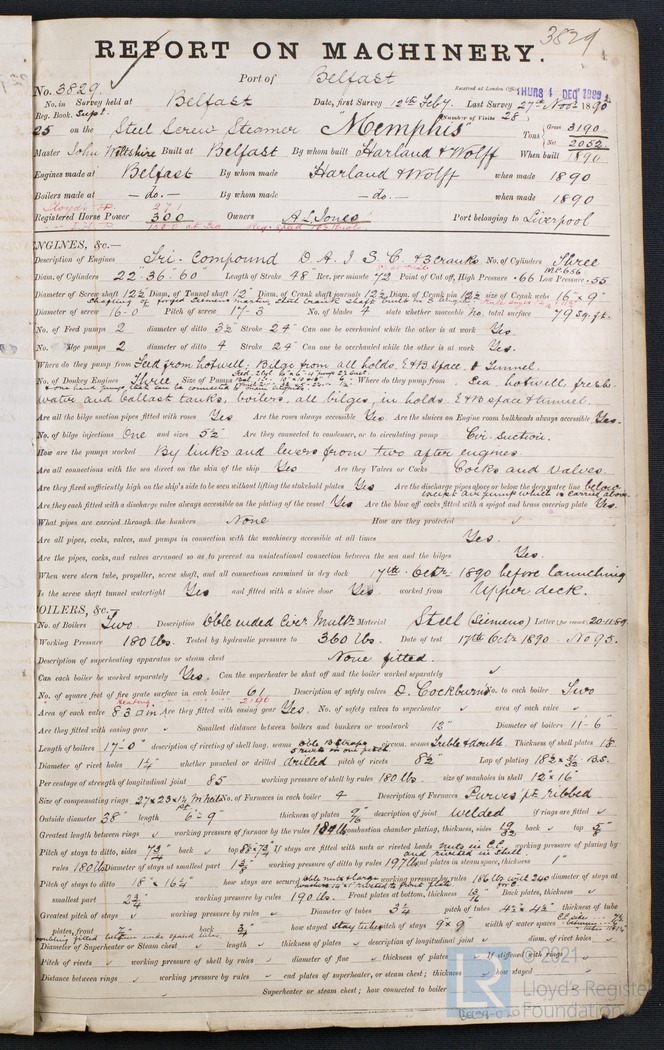 3829
REPORT ON MACHINERY.
Port of Belfast
No. 3829. Received at London Office THURS 4 DEC 1890
No. in Survey held at Belfast Date, first Survey 12th Feby. Last Survey 27th Novr 1890
Reg. Book. Supt. (Number of Visits 28)
25 on the Steel Screw Steamer "Memphis" Tons Gross 3190
Net 2052
Master John Wiltshire Built at Belfast By whom built Harland & Wolff When built 1890
Engines made at Belfast By whom made Harland & Wolff when made 1890
Boilers made at — do. — By whom made — do. — when made 1890
Registered Horse Power 300 Owners A L Jones Port belonging to Liverpool
ENGINES, &c.—
Description of Engines Tri-Compound D. A. I. S. C. & 3 cranks No. of Cylinders Three
Diam. of Cylinders 22" 36" 60" Length of Stroke 48" Rev. per minute 72 Point of Cut off, High Pressure .66 Low Pressure .55
Diameter of Screw shaft 12½ Diam. of Tunnel shaft 12" Diam. of Crank shaft journals 12½ Diam. of Crank pin 12½ size of Crank webs 16" × 9"
Diameter of screw 16-0 Pitch of screw 17-3 No. of blades 4 state whether moveable No. total surface 79 sq. ft.
No. of Feed pumps 2 diameter of ditto 3½ Stroke 24" Can one be overhauled while the other is at work Yes.
No. of Bilge pumps 2 diameter of ditto 4 Stroke 24" Can one be overhauled while the other is at work Yes.
Where do they pump from Feed from hotwell: Bilge from all holds, E & B space, & Tunnel.
No. of Donkey Engines Three Size of Pumps Where do they pump from Sea, hotwell, fresh
water and ballast tanks, boilers, all bilges, in holds, E & B space & tunnel.
Are all the bilge suction pipes fitted with roses Yes Are the roses always accessible Yes. Are the sluices on Engine room bulkheads always accessible Yes.
No. of bilge injections One and sizes 5½" Are they connected to condenser, or to circulating pump Cir. Suction.
How are the pumps worked By links and levers from two after engines.
Are all connections with the sea direct on the skin of the ship Yes Are they Valves or Cocks Cocks and valves.
Are they fixed sufficiently high on the ship's side to be seen without lifting the stokehold plates Yes Are the discharge pipes above or below the deep water line below
except air pump which is carried above.
Are they each fitted with a discharge valve always accessible on the plating of the vessel Yes Are the blow off cocks fitted with a spigot and brass covering plate Yes.
What pipes are carried through the bunkers None How are they protected ✓
Are all pipes, cocks, valves, and pumps in connection with the machinery accessible at all times Yes.
Are the pipes, cocks, and valves arranged so as to prevent an unintentional connection between the sea and the bilges Yes.
When were stern tube, propeller, screw shaft, and all connections examined in dry dock 17th Octr. 1890 before launching
Is the screw shaft tunnel watertight Yes and fitted with a sluice door Yes. worked from Upper deck.
BOILERS, &c.—
No. of Boilers Two Description D'ble ended Circr Multr Material Steel (Siemens) Letter (for record) 20-11-89
Working Pressure 180 lbs. Tested by hydraulic pressure to 360 lbs. Date of test 17th Octr 1890 - No 95.
Description of superheating apparatus or steam chest None fitted.
Can each boiler be worked separately Yes. Can the superheater be shut off and the boiler worked separately ✓
No. of square feet of fire grate surface in each boiler 61 Description of safety valves D. Cockburn's No. to each boiler Two
Area of each valve 8.3 □ in Are they fitted with easing gear Yes. No. of safety valves to superheater ✓ area of each valve ✓
Are they fitted with easing gear ✓ Smallest distance between boilers and bunkers or woodwork 12" Diameter of boilers 11'-6"
Length of boilers 17'-0" description of riveting of shell long. seams D'ble B. Straps 5 rivets in one pitch circum. seams Treble & double. Thickness of shell plates
Diameter of rivet holes 1¼" whether punched or drilled drilled pitch of rivets 8½" Lap of plating
Per centage of strength of longitudinal joint 85 working pressure of shell by rules 180 lbs. size of manholes in shell 12" × 16"
Size of compensating rings No. of Furnaces in each boiler 4 Description of Furnaces Purves pt. ribbed
Outside diameter 38" length 6'-9" thickness of plates 9/16" description of joint welded if rings are fitted ✓
Greatest length between rings ✓ working pressure of furnace by the rules combustion chamber plating, thickness, sides 19/32 back ✓ top
Pitch of stays to ditto, sides 7¾" back ✓ top If stays are fitted with nuts or riveted heads nuts in C.C. and riveted in shell working pressure of plating by
rules 180 lbs Diameter of stays at smallest part 1⅜ working pressure of ditto by rules 197 lbs end plates in steam space, thickness 1"
Pitch of stays to ditto 18" × 16¼" how stays are secured working pressure by rules 186 lbs diameter of stays at
smallest part 2¾" working pressure by rules 190 lbs. Front plates at bottom, thickness 13/16" Back plates, thickness ✓
Greatest pitch of stays ✓ working pressure by rules ✓ Diameter of tubes 3¼ pitch of tubes 4½ × 4½" thickness of tube
plates, front back 3/4" how stayed stay tubes pitch of stays 9 × 9 width of water spaces
Diameter of Superheater or Steam chest ✓ length ✓ thickness of plates ✓ description of longitudinal joint ✓ diam. of rivet holes ✓
Pitch of rivets ✓ working pressure of shell by rules ✓ diameter of flue ✓ thickness of plates ✓ If stiffened with rings ✓
Distance between rings ✓ working pressure by rules ✓ end plates of superheater, or steam chest; thickness ✓ how stayed
Superheater or steam chest; how connected to boiler ✓
© 2021
LR Lloyd's Register
Foundation